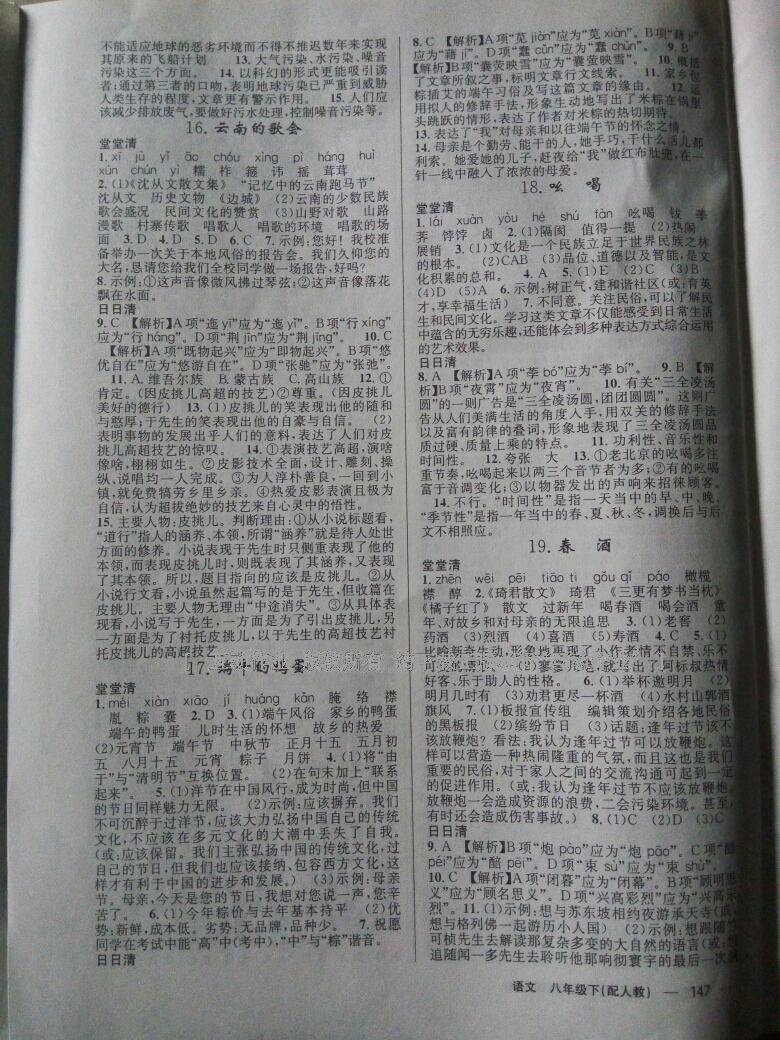 不能适应地球的恶劣环境而不得不推迟数年来实现
其原来的飞船计划　13.大气污染、水污染、噪音
污染这三个方面。　14.以科幻的形式更能吸引读
者;通过第三者的口吻,表明地球污染已严重到威胁
人类生存的程度,文章更有警示作用。　15.人们应
该减少排放废气,要做好污水处理,控制噪音污染等。
16.云南的歌会
堂堂清
1.xī　jù　yǐ　āo　chóu　xìng　pì　háng　huì
xún　chún　yì　糯　柞　箍　讳　摇　茸茸
2.(1)《沈从文散文集》　“记忆中的云南跑马节”
沈从文　历史文物　《边城》　(2)云南的少数民族
歌会盛况　民间文化的赞赏　(3)山野对歌　山路
漫歌　村寨传歌　唱歌人　唱歌的环境　唱歌的场
面　3.D　4.D　5.D　6.C　7.示例:您好！我校准
备举办一次关于本地风俗的报告会。我们久仰您的
大名,恳请您给我们全校同学做一场报告,好吗?
8.示例:①这声音像微风拂过琴弦;②这声音像落花
飘在水面。
日日清
9.C　【解析】A项“迤yī”应为“迤yǐ”。B项“行xíng”
应为“行háng”。D项“荆jīn”应为“荆jīng”。　10.C
【解析】A项“既物起兴”应为“即物起兴”。B项“悠
优自在”应为“悠游自在”。D项“张驰”应为“张弛”。
11.A.维吾尔族　B.蒙古族　C.高山族　12.①
肯定。(因皮挑儿高超的技艺)②尊重。(因皮挑儿
美好的德行)　13.(1)皮挑儿的笑表现出他的随和
与憨厚;于先生的笑表现出他的自豪与自信。　(2)
表明事物的发展出乎人们的意料,表达了人们对皮
挑儿高超技艺的惊叹。　14.①表演技艺高超,演啥
像啥,栩栩如生。②皮影技术全面,设计、雕刻、操
纵、说唱均一人完成。③为人淳朴善良,一回到小
镇,就免费犒劳乡里乡亲。④热爱皮影表演且极为
自信,认为超拔绝妙的技艺来自心灵中的悟性。
15.主要人物:皮挑儿。判断理由:①从小说标题看,
“道行”指人的涵养、本领,所谓“涵养”就是待人处世
方面的修养。小说表现于先生时只侧重表现了他的
本领,而表现皮挑儿时,则既表现了其涵养,又表现
了其本领。所以,题目指向的应该是皮挑儿。②从
小说行文看,小说虽然起篇写的是于先生,但收篇在
皮挑儿。主要人物无理由“中途消失”。③从具体表
现看,小说写于先生,一方面是为了引出皮挑儿,另
一方面是为了衬托皮挑儿,以于先生的高超技艺衬
托皮挑儿的高超技艺。
17.端午的鸭蛋
堂堂清
1.méi　xián　xiāo　jī　huáng　kān　腌　络　襟
胤　粽　囊　2.D　3.(1)端午风俗　家乡的鸭蛋
端午的鸭蛋　儿时生活的怀想　故乡的热爱
(2)元宵节　端午节　中秋节　正月十五　五月初
五　八月十五　元宵　粽子　月饼　4.(1)将“由
于”与“清明节”互换位置。　(2)在句末加上“联系
起来”。　5.(1)洋节在中国风行,成为时尚,但中国
的节日同样魅力无限。　(2)示例:应该摒弃。我们
不可沉醉于过洋节,应该大力弘扬中国自己的传统
文化,不应该在多元文化的大潮中丢失了自我。
(或:应该保留。我们主张弘扬中国的传统文化,过
自己的节日,但我们也应该接纳、包容西方文化,这
样才有利于中国的进步和发展。)　(3)示例:母亲
节。母亲,今天是您的节日,我想对您说一声,您辛
苦了。　6.(1)今年粽价与去年基本持平　(2)优
势:新鲜,成本低。劣势:无品牌,品种少。　7.祝愿
同学在考试中能“高”中(考中),“中”与“粽”谐音。
日日清
8.C　【解析】A项“苋jiàn”应为“苋xiàn”。B项“藉jí”
应为“藉jí”。D项“蠢cǔn”应为“蠢chǔn”。　9.B
【解析】“囊荧映雪”应为“囊萤映雪”。　10.概括
了文章所叙之事,标明文章行文线索。　11.家乡包
粽插艾的端午习俗及写这篇文章的缘由。　12.运
用拟人的修辞手法,形象生动地写出了米粽在锅里
头跳跃的情形,表现了作者对米粽的热切期待。
13.表达了“我”对母亲和以往端午节的怀念之情。
14.母亲是个勤劳、能干的人,她手巧,干什么活儿都
利索。她爱她的儿子,赶夜给“我”做红布肚兜,在一
针一线中融入了浓浓的母爱。
18.吆　喝
堂堂清
1.lái　xuàn　yòu　hé　shú　fàn　吆喝　钹　荸
荠　饽饽　卤　2.(1)隔阂　值得一提　(2)热闹
展销　3.(1)文化是一个民族立足于世界民族之林
的根本。　(2)CAB　(3)品位、道德以及智能,是文
化积累的总和。　4.A　5.(1)E　(2)C　(3)B
(4)D　(5)A　6.示例:树正气,建和谐社区(或:育英
才,享幸福生活)　7.不同意。关注民俗,可以了解民
生和民间文化。学习这类文章不仅能感受到日常生活
中蕴含的无穷乐趣,还能体会到多种表达方式综合运用
的艺术效果。
日日清
8.A　【解析】A项“荸bó”应为“荸bí”。　9.B　【解
析】B项“夜霄”应为“夜宵”。　10.有关“三全凌汤
圆”的一则广告是“三全凌汤圆,团团圆圆”。这则广
告从人们美满生活的角度入手,用双关的修辞手法
以及富有韵律的叠词,形象地表现了三全凌汤圆品
质过硬、质量上乘的特点。　11.功利性、音乐性和
时间性。　12.夸张　大　13.①老北京的吆喝多注
重节奏,吆喝起来以两三个音节者为多;②有的吆喝
富于音调变化;③以物器发出的声响来招徕顾客。
14.不行。“时间性”是指一天当中的早、中、晚。
“季节性”是指一年当中的春、夏、秋、冬,调换后与后
文不相照应。
19.春　酒
堂堂清
1.zhēn　wēi　pēi　tiāo tì　gǒu qǐ　páo　橄榄
襟　醇　2.《琦君散文》　琦君　《三更有梦书当枕》
《橘子红了》　散文　过新年　喝春酒　喝会酒　童
年、对故乡和对母亲的无限追思　3.(1)老窖　(2)
药酒　(3)烈酒　(4)喜酒　(5)寿酒　4.C　5.(1)
好客、乐于助人的性格。　6.(1)举杯邀明月　(2)
明月几时有　(3)劝君更尽一杯酒　(4)水村山郭酒
旗风　7.(1)板报宣传组　编辑策划介绍各地民俗
的黑板报　(2)缤纷节日　(3)话题:逢年过节该不
该放鞭炮?　看法:我认为逢年过节可以放鞭炮。这
样可以营造一种热闹隆重的气氛,而且这也是我们
重要的民俗,对于家人之间的交流沟通可起到一定
的促进作用。(或:我认为逢年过节不应该放鞭炮。
放鞭炮一会造成资源的浪费,二会污染环境。甚至,
有时还会造成伤害事故。)　8.(1)D　(2)D　(3)C
日日清
9.A　【解析】B项“炮pào”应为“炮páo”。C项“醅
péi”应为“醅pēi”。D项“束sù”应为“束shù”。
10.C　【解析】A项“闭暮”应为“闭幕”。B项“顾明思
义”应为“顾名思义”。D项“兴高彩烈”应为“兴高采
烈”。　11.(1)示例:想与苏东坡相约夜游承天寺(或:
想与格列佛一起游历小人国)　(2)示例:想跟随
可桢先生去解读那复杂多变的大自然的语言(或:想
追随闻一多先生去聆听他那响彻寰宇的最后一次
语文　八年级下(配人教)　— 147 —